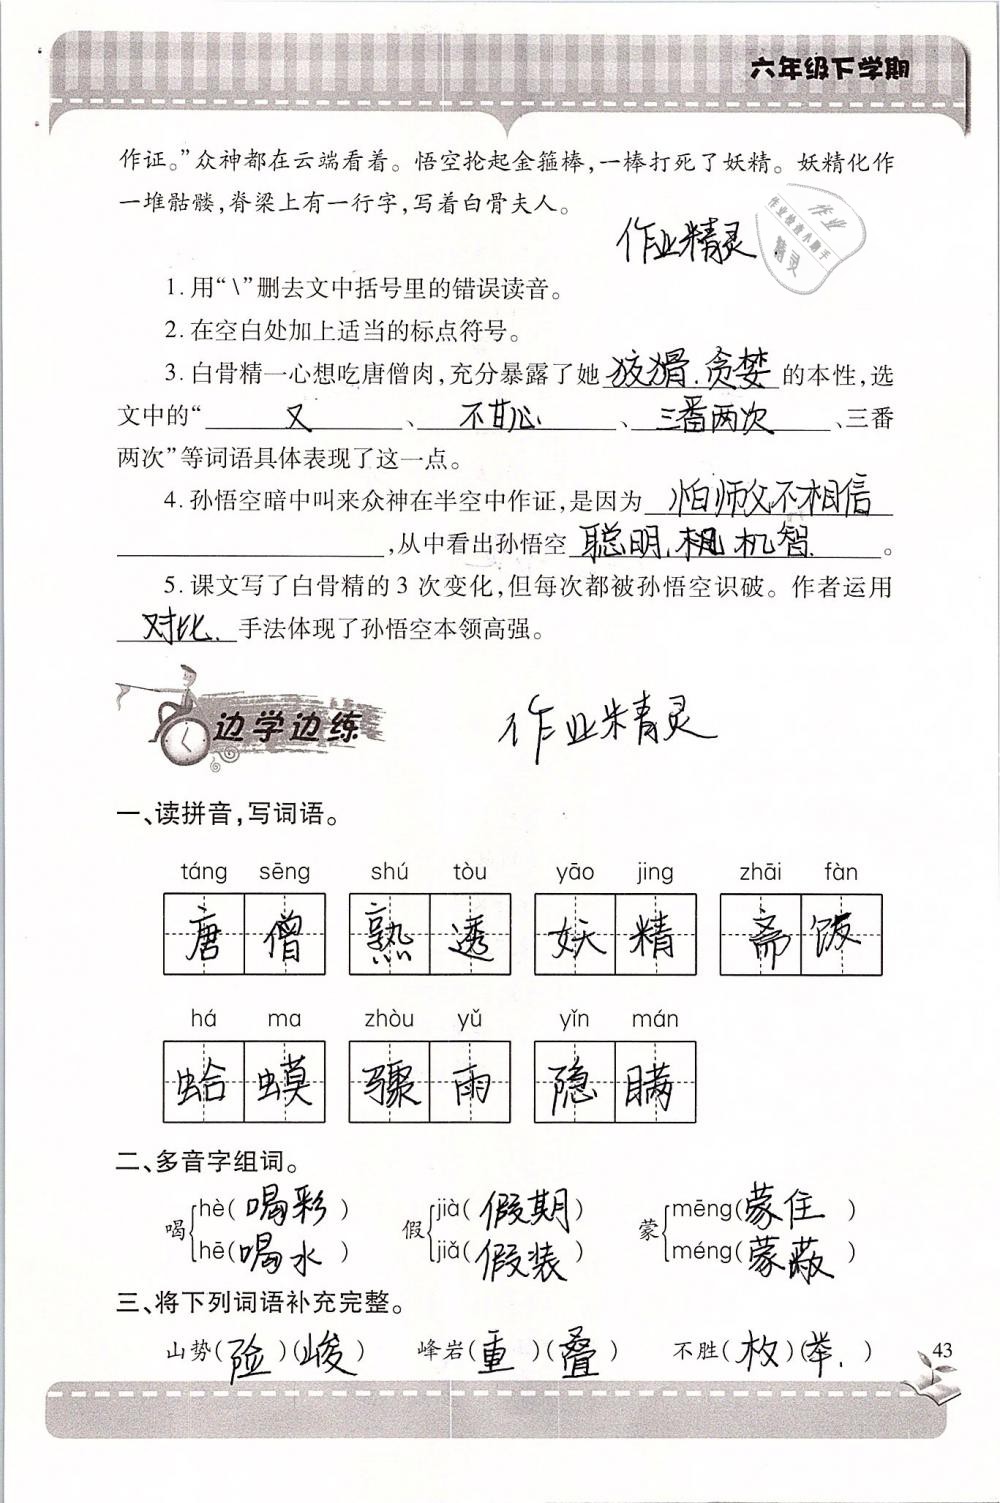 六年级下学期
作证。”众神都在云端看着。悟空抡起金箍棒，一棒打死了妖精。妖精化作
一堆骷髅，脊梁上有一行字，写着白骨夫人。
作业精灵
作业
作业检查小助手
精灵
1. 用“\”删去文中括号里的错误读音。
2. 在空白处加上适当的标点符号。
3. 白骨精一心想吃唐僧肉，充分暴露了她狡猾、贪婪的本性，选
文中的“又、不甘心、三番两次、三番
两次”等词语具体表现了这一点。
4. 孙悟空暗中叫来众神在半空中作证，是因为怕师父不相信
，从中看出孙悟空聪明、机智。
5. 课文写了白骨精的3次变化，但每次都被孙悟空识破。作者运用
对比手法体现了孙悟空本领高强。
边学边练
作业精灵
一、读拼音，写词语。
táng sēng shú tòu yāo jing zhāi fàn
唐僧 熟透 妖精 斋饭
há ma zhòu yǔ yǐn mán
蛤蟆 骤雨 隐瞒
二、多音字组词。
喝 hè(喝彩) 假 jià(假期) 蒙 mēng(蒙住)
hē(喝水) jiǎ(假装) méng(蒙蔽)
三、将下列词语补充完整。
山势(险)(峻) 峰岩(重)(叠) 不胜(枚)(举)
43